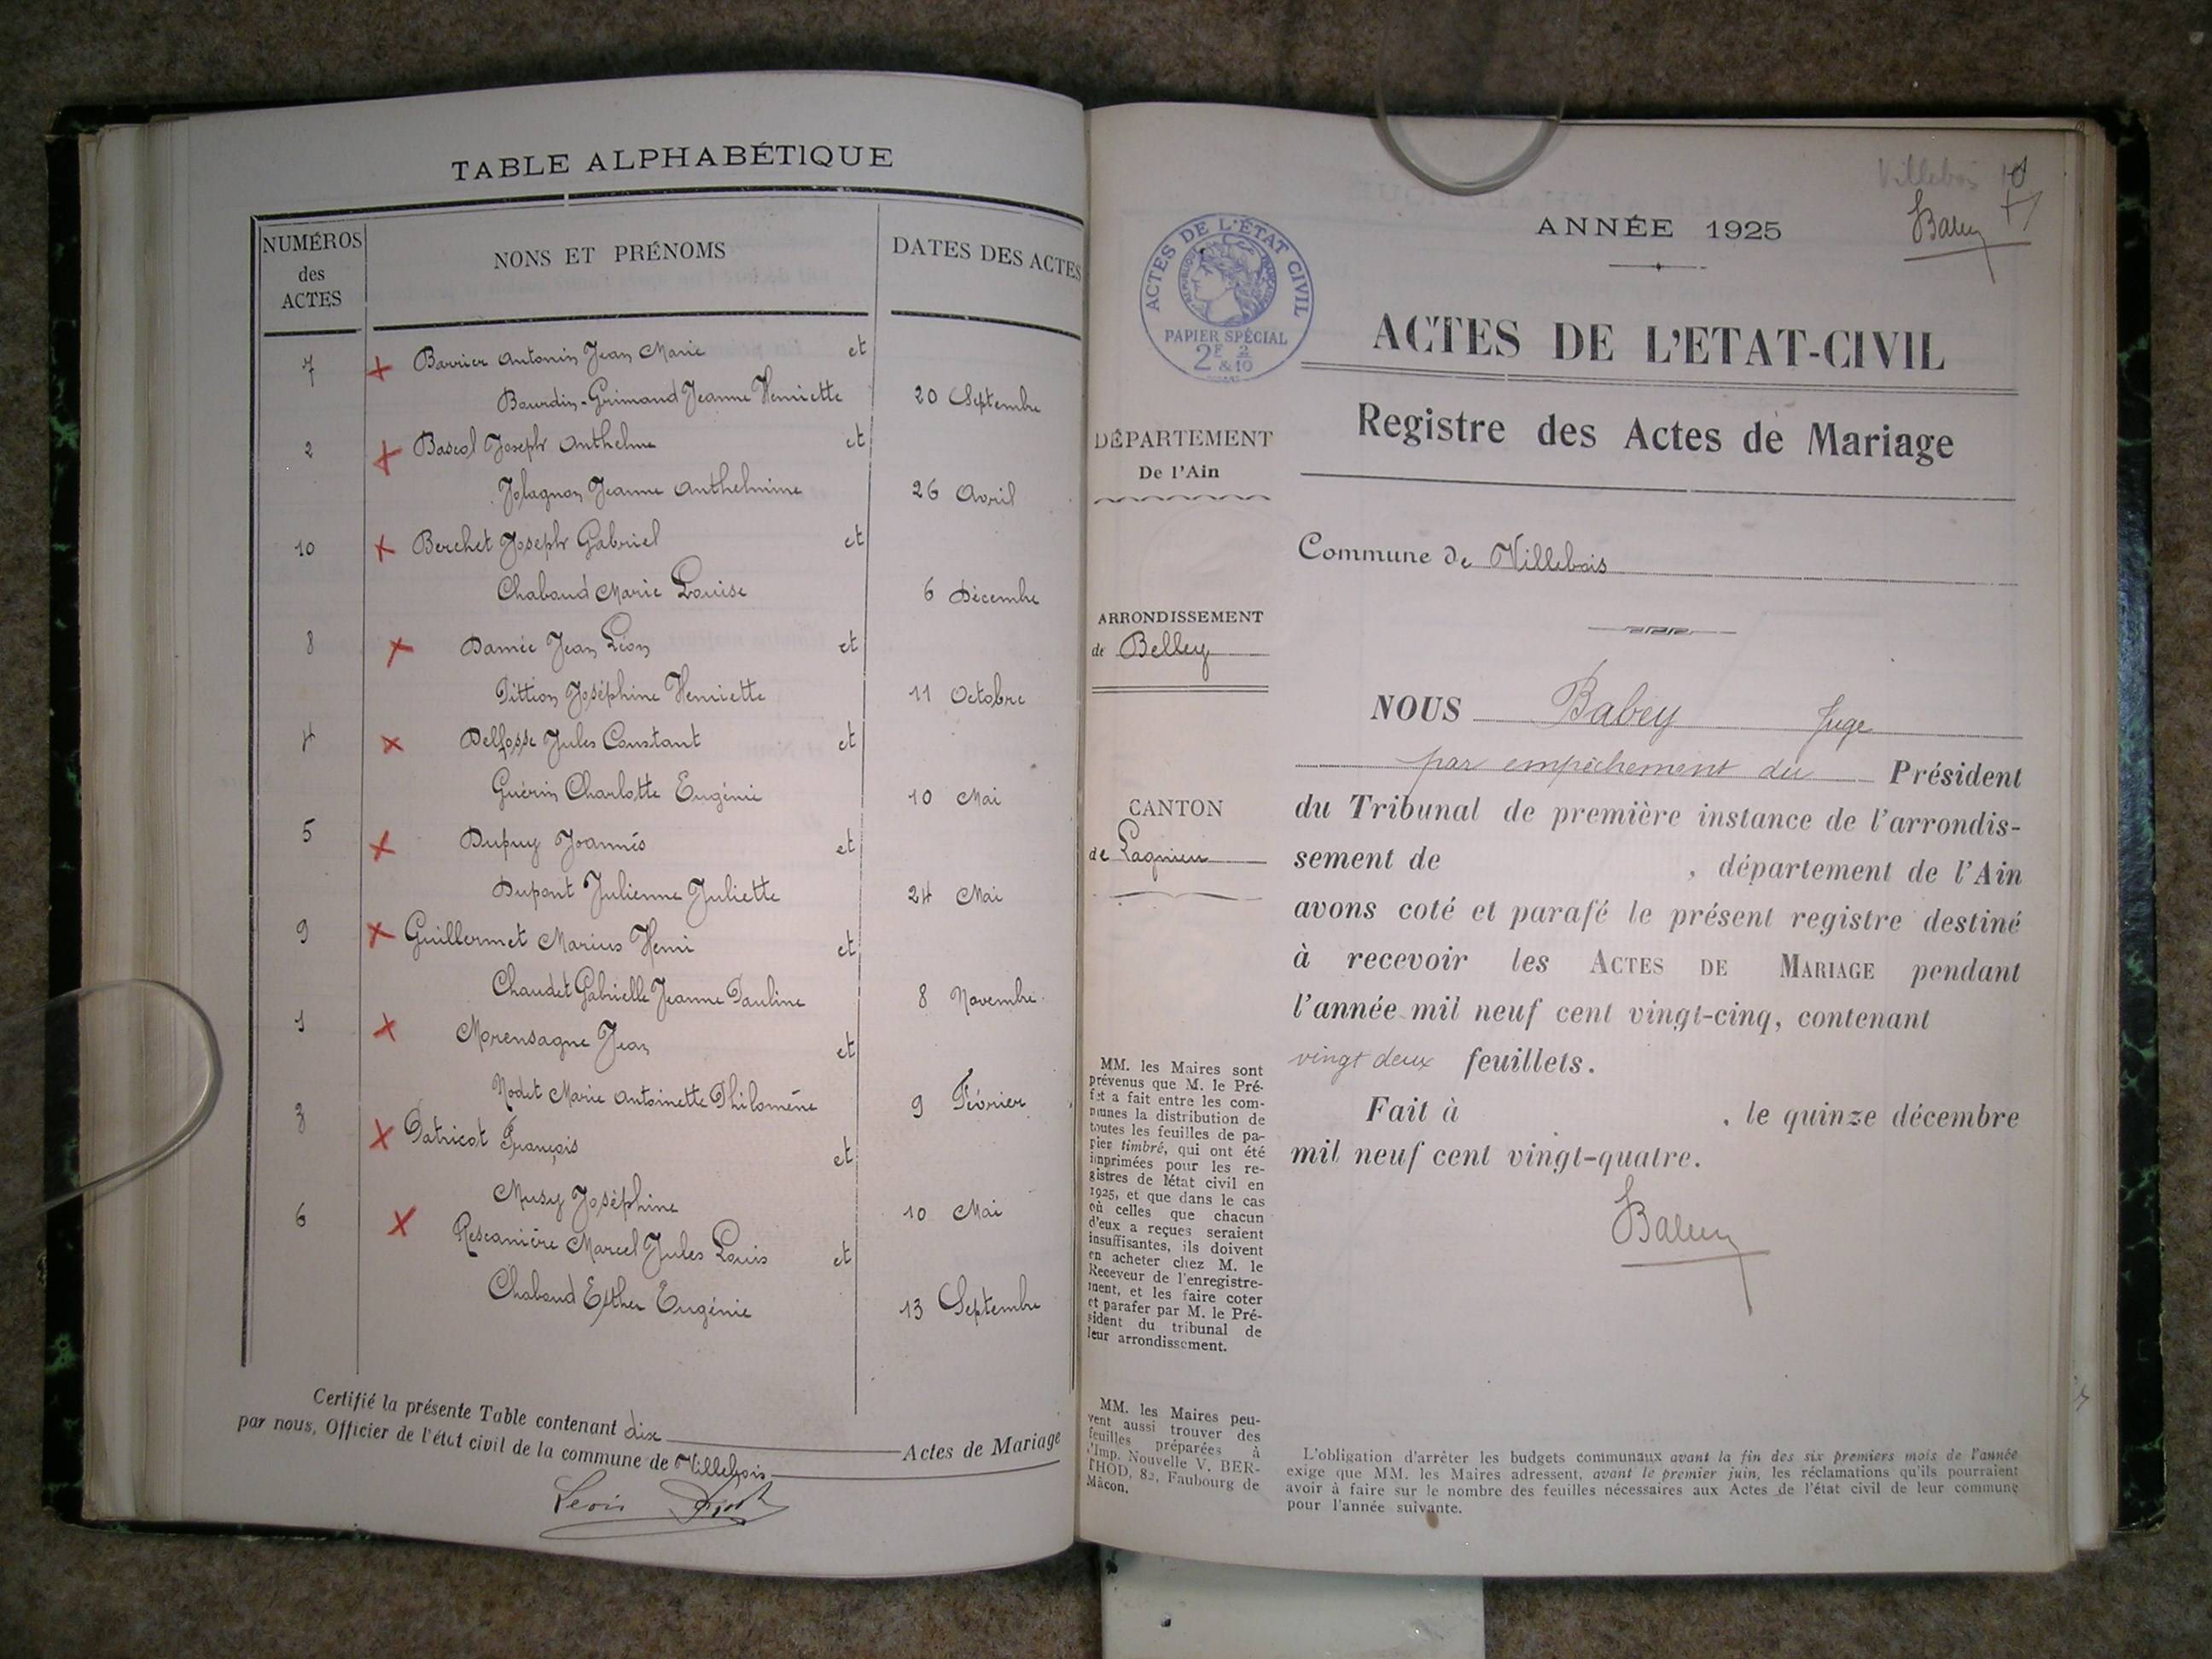 TABLE ALPHABÉTIQUE
NUMÉROS
des
ACTES
NONS ET PRÉNOMS
DATES DES ACTES
7 Barrier Antonin Jean Marie et
Bourdin-Grimaud Jeanne Henriette 20 Septembre
2 Bascol Joseph Anthelme et
Jolagnon Jeanne Anthelmine 26 Avril
10 Berchet Joseph Gabriel et
Chabaud Marie Louise 6 Décembre
8 Damée Jean Léon et
Pittion Joséphine Henriette 11 Octobre
4 Delfosse Jules Constant et
Guérin Charlotte Eugénie 10 Mai
5 Dupuy Joannès et
Dupont Julienne Juliette 24 Mai
9 Guillermet Marius Henri et
Chaudet Gabrielle Jeanne Pauline 8 Novembre
1 Morensagne Jean et
Nodet Marie Antoinette Philomène 9 Février
3 Patricot François et
Musy Joséphine 10 Mai
6 Rescanière Marcel Jules Louis et
Chabaud Esther Eugénie 13 Septembre
Certifié la présente Table contenant dix Actes de Mariage
par nous, Officier de l'état civil de la commune de Villebois
Villebois
ANNÉE 1925
ACTES DE L'ÉTAT CIVIL
RÉPUBLIQUE FRANÇAISE
PAPIER SPÉCIAL
2F 2
&10
ACTES DE L'ETAT-CIVIL
Registre des Actes de Mariage
DÉPARTEMENT
De l'Ain
Commune de Villebois
ARRONDISSEMENT
de Belley
CANTON
de Lagnieu
NOUS Babey Juge
par empêchement du Président
du Tribunal de première instance de l'arrondis-
sement de , département de l'Ain
avons coté et parafé le présent registre destiné
à recevoir les ACTES DE MARIAGE pendant
l'année mil neuf cent vingt-cinq, contenant
vingt deux feuillets.
Fait à , le quinze décembre
mil neuf cent vingt-quatre.
Babey
MM. les Maires sont
prévenus que M. le Pré-
fet a fait entre les com-
munes la distribution de
toutes les feuilles de pa-
pier timbré, qui ont été
imprimées pour les re-
gistres de l'état civil en
1925, et que dans le cas
où celles que chacun
d'eux a reçues seraient
insuffisantes, ils doivent
en acheter chez M. le
Receveur de l'enregistre-
ment, et les faire coter
et parafer par M. le Pré-
sident du tribunal de
leur arrondissement.
MM. les Maires peu-
vent aussi trouver des
feuilles préparées à
l'Imp. Nouvelle V. BER-
THOD, 82, Faubourg de
Mâcon.
L'obligation d'arrêter les budgets communaux avant la fin des six premiers mois de l'année
exige que MM. les Maires adressent, avant le premier juin, les réclamations qu'ils pourraient
avoir à faire sur le nombre des feuilles nécessaires aux Actes de l'état civil de leur commune
pour l'année suivante.